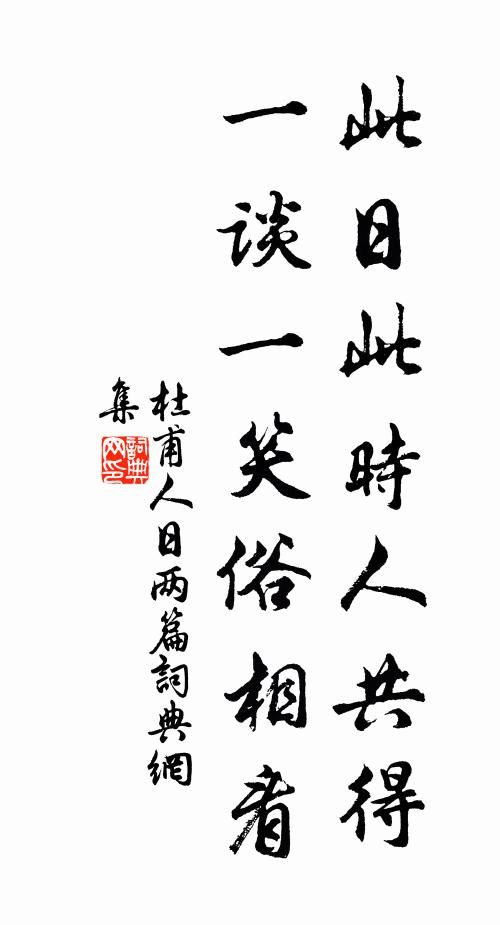 此日此時人共得
一談一笑俗相看
杜甫人日两篇詞典網
集
詞典
网印